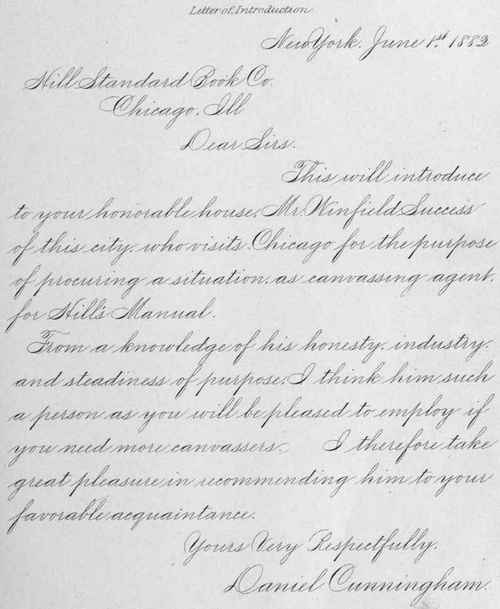 Letter of Introduction
New York. June 1st 1882
Hill Standard Book Co.
Chicago. Ill
Dear Sirs.
This will introduce
to your honorable house, Mr. Winfield Success
of this city, who visits Chicago for the purpose
of procuring a situation, as canvassing agent,
for Hill's Manual.
From a knowledge of his honesty, industry,
and steadiness of purpose, I think him such
a person as you will be pleased to employ if
you need more canvassers. I therefore take
great pleasure in recommending him to your
favorable acquaintance.
Yours Very Respectfully,
Daniel Cunningham.